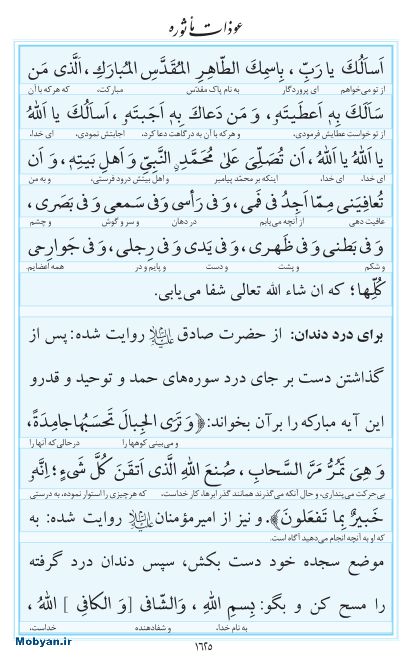 عوذات مأثوره
اَسأَلُكَ يا رَبِّ ، بِاسمِكَ الطّاهِرِ المُقَدَّسِ المُبارَكِ، اَلَّذى مَن
از تو می‌خواهم ای پروردگار به نام پاک مقدّس مبارکت، که هر که با آن
سَأَلَكَ بِهٖ اَعطَيتَهٗ، وَ مَن دَعاكَ بِهٖ اَجَبتَهٗ، اَسأَلُكَ يا اَللّٰهُ
از تو خواست عطایش فرمودی، و هر که با آن به درگاهت دعا کرد، اجابتش نمودی، ای خدا،
يا اَللّٰهُ يا اَللّٰهُ، اَن تُصَلِّىَ عَلىٰ مُحَمَّدٍ النَّبِىِّ وَ اَهلِ بَيتِهٖ، وَ اَن
ای خدا، ای خدا، اینکه بر محمّد پیامبر و اهل بیتش درود فرستی، و به من
تُعافِيَنى مِمّا اَجِدُ فى فَمى، وَ فى رَأسى وَ فى سَمعى وَ فى بَصَرى،
عافیت دهی از آنچه می‌یابم در دهان و سر و گوش و چشم
وَ فى بَطنى وَ فى ظَهرى، وَ فى يَدى وَ فى رِجلى، وَ فى جَوارِحى
و شکم و پشت و دست و پایم و در همه اعضایم.
كُلِّها؛ که ان شاء الله تعالی شفا می‌یابی.
برای درد دندان: از حضرت صادق علیه‌السلام روایت شده: پس از
گذاشتن دست بر جای درد سوره‌های حمد و توحید و قدر و
این آیه مبارکه را بر آن بخواند: ﴿وَ تَرَى الجِبالَ تَحسَبُها جامِدَةً،
و می‌بینی کوهها را در حالی که آنها را
وَ هِىَ تَمُرُّ مَرَّ السَّحابِ، صُنعَ اللهِ الَّذى اَتقَنَ كُلَّ شَىءٍ؛ اِنَّهٗ
بی‌حرکت می‌پنداری، و حال آنکه می‌گذرند همانند گذر ابرها، کار خداست، که هر چیزی را استوار نموده، به درستی
خَبيرٌ بِما تَفعَلونَ﴾. و نیز از امیرمؤمنان علیه‌السلام روایت شده: به
که او به آنچه انجام می‌دهید آگاه است.
موضع سجده خود دست بکش، سپس دندان درد گرفته
را مسح کن و بگو: بِسمِ اللهِ ، وَالشّافى [وَ الكافى ] اللهُ ،
به نام خدا، و شفادهنده خداست،
Mobyan.ir
١٦٢٥